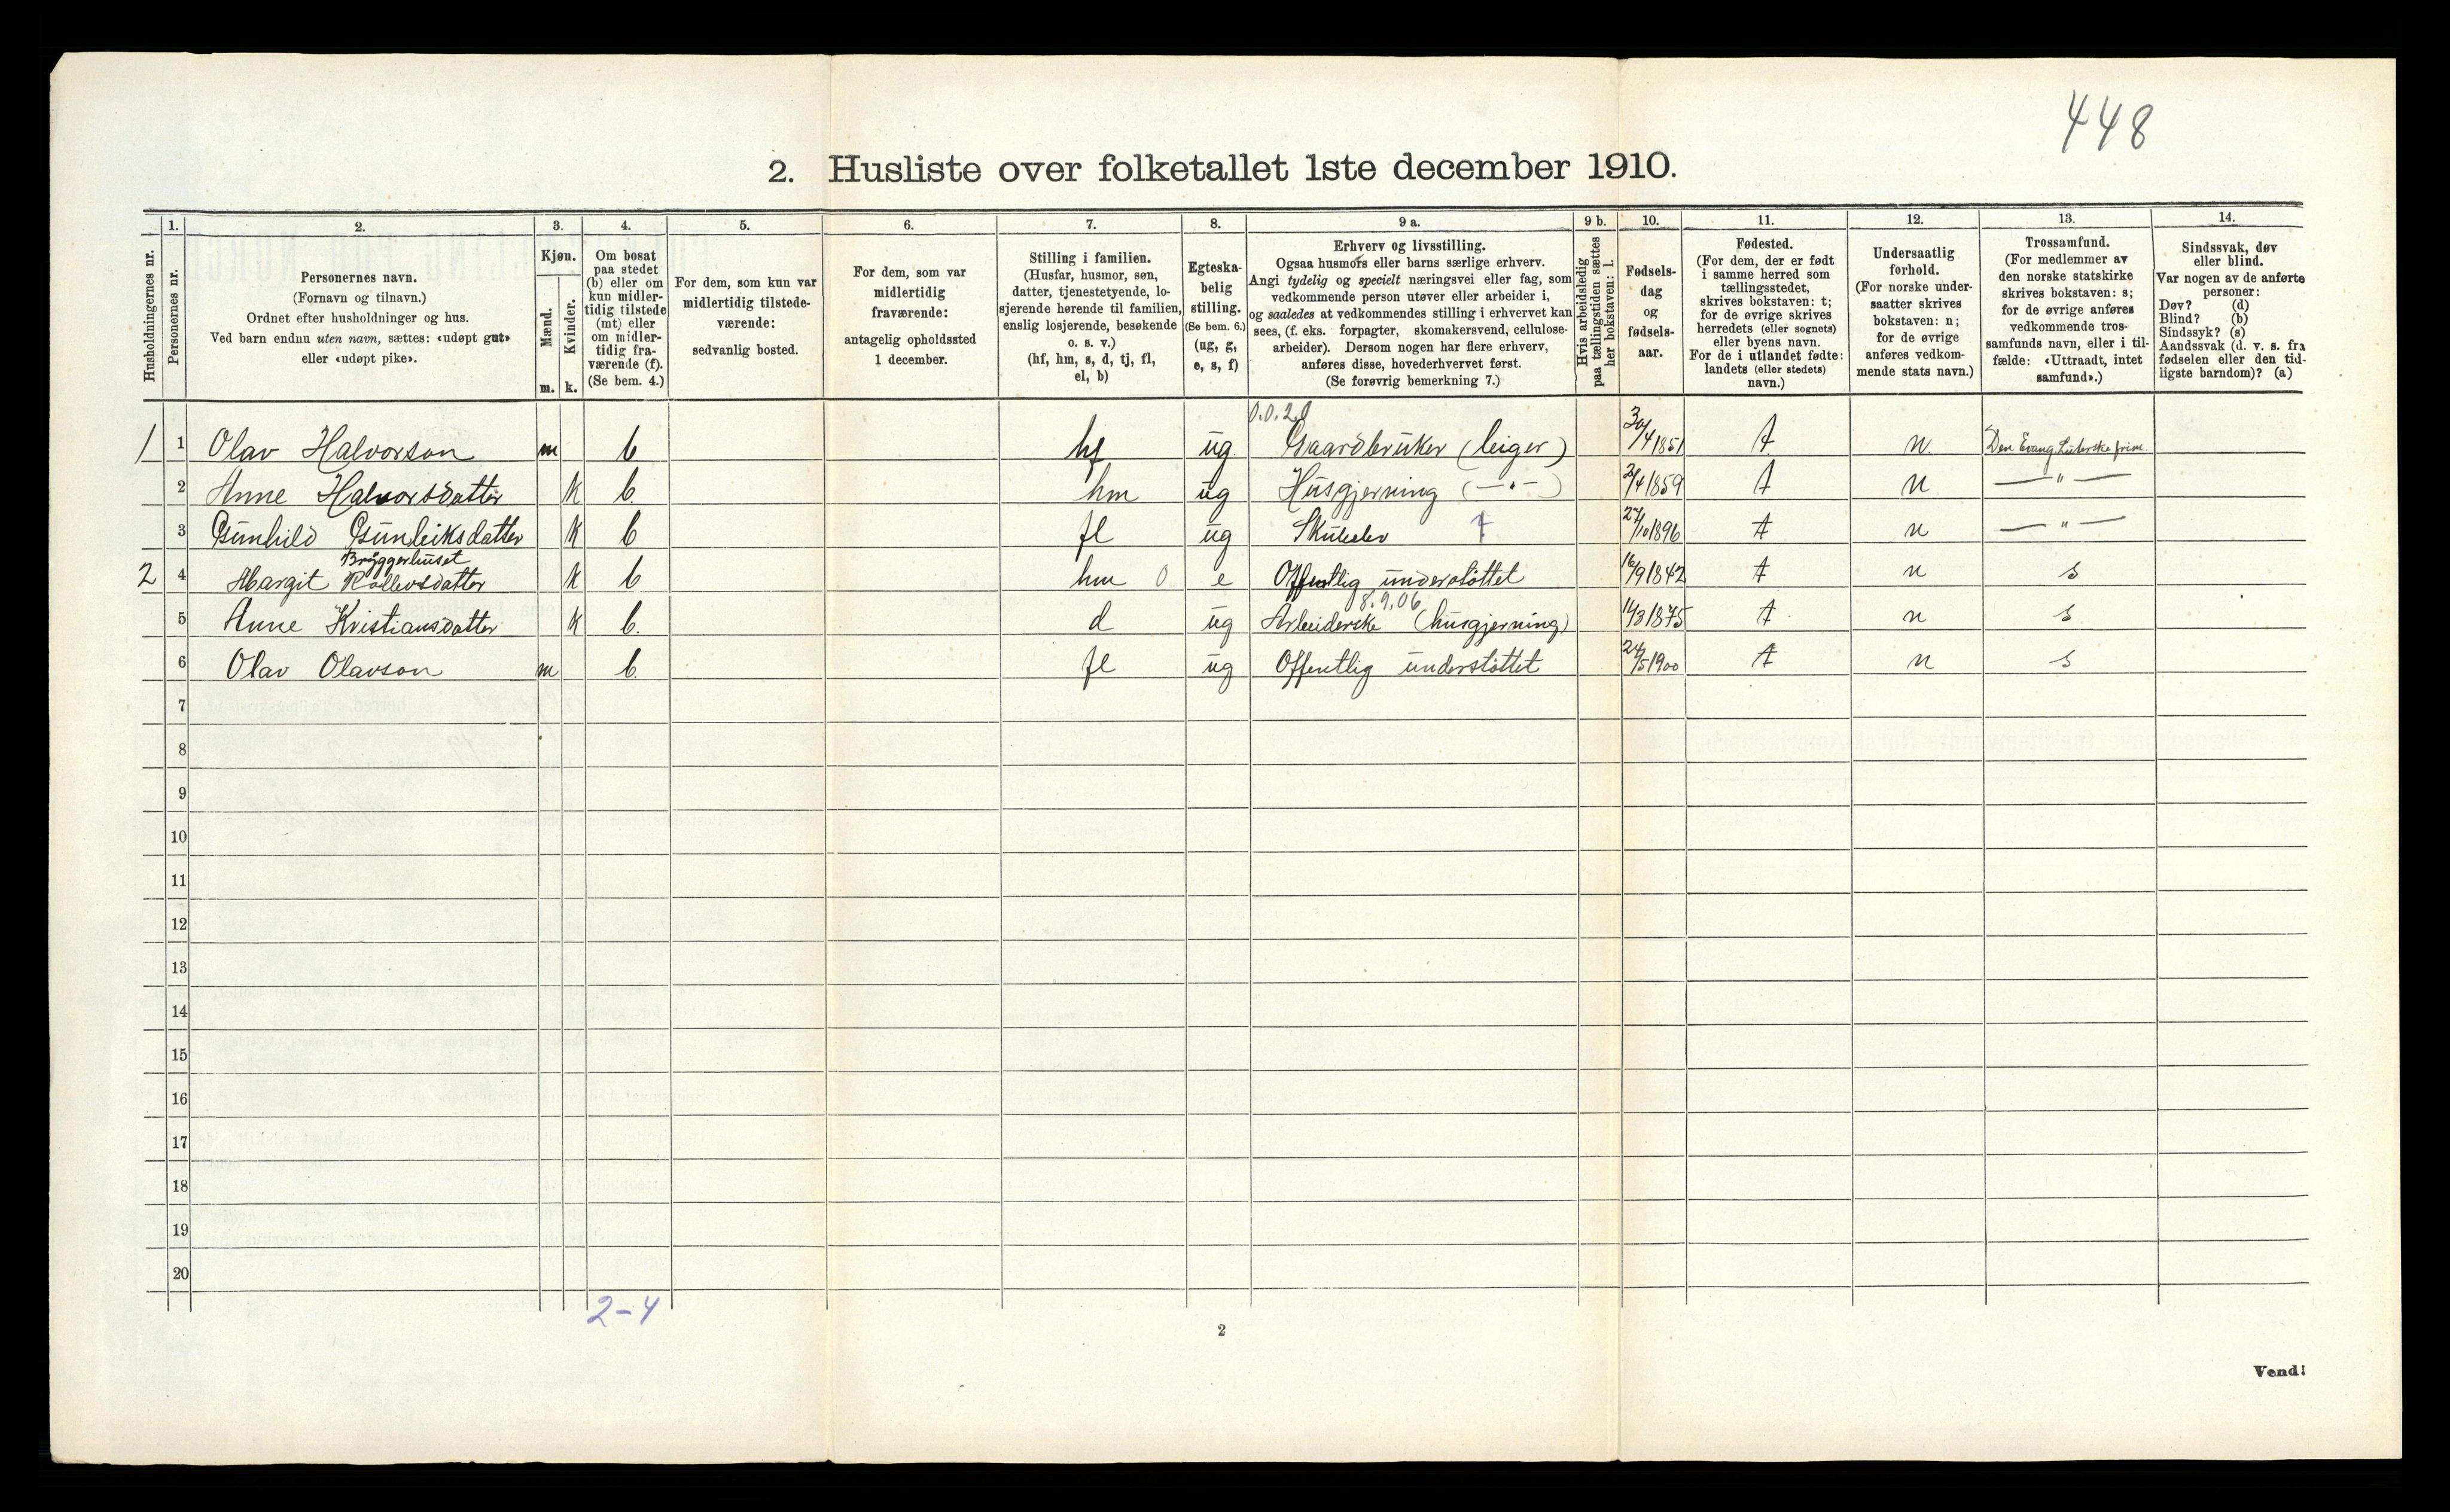 448
2. Husliste over folketallet 1ste december 1910.
Husholdningernes nr.
1. Personernes nr.
2. Personernes navn.
(Fornavn og tilnavn.)
Ordnet efter husholdninger og hus.
Ved barn endnu uten navn, sættes: «udøpt gut»
eller «udøpt pike».
3. Kjøn.
Mænd. m.
Kvinder. k.
4. Om bosat
paa stedet
(b) eller om
kun midler-
tidig tilstede
(mt) eller
om midler-
tidig fra-
værende (f).
(Se bem. 4.)
5. For dem, som kun var
midlertidig tilstede-
værende:
sedvanlig bosted.
6. For dem, som var
midlertidig
fraværende:
antagelig opholdssted
1 december.
7. Stilling i familien.
(Husfar, husmor, søn,
datter, tjenestetyende, lo-
sjerende hørende til familien,
enslig losjerende, besøkende
o. s. v.)
(hf, hm, s, d, tj, fl,
el, b)
8. Egteska-
belig
stilling.
(Se bem. 6.)
(ug, g,
e, s, f)
9 a. Erhverv og livsstilling.
Ogsaa husmors eller barns særlige erhverv.
Angi tydelig og specielt næringsvei eller fag, som
vedkommende person utøver eller arbeider i,
og saaledes at vedkommendes stilling i erhvervet kan
sees, (f. eks. forpagter, skomakersvend, cellulose-
arbeider). Dersom nogen har flere erhverv,
anføres disse, hovederhvervet først.
(Se forøvrig bemerkning 7.)
9 b. Hvis arbeidsledig
paa tællingstiden sættes
her bokstaven: l.
10. Fødsels-
dag
og
fødsels-
aar.
11. Fødested.
(For dem, der er født
i samme herred som
tællingsstedet,
skrives bokstaven: t;
for de øvrige skrives
herredets (eller sognets)
eller byens navn.
For de i utlandet fødte:
landets (eller stedets)
navn.)
12. Undersaatlig
forhold.
(For norske under-
saatter skrives
bokstaven: n;
for de øvrige
anføres vedkom-
mende stats navn.)
13. Trossamfund.
(For medlemmer av
den norske statskirke
skrives bokstaven: s;
for de øvrige anføres
vedkommende tros-
samfunds navn, eller i til-
fælde: «Uttraadt, intet
samfund».)
14. Sindssvak, døv
eller blind.
Var nogen av de anførte
personer:
Døv? (d)
Blind? (b)
Sindssyk? (s)
Aandssvak (d. v. s. fra
fødselen eller den tid-
ligste barndom)? (a)
0.0.20
1 1 Olav Halvorson m b hf ug Gaardbruker (leiger) 30/4 1851 t n Den Evang. Luterske frim.
2 Anne Halvorsdatter k b hm ug Husgjerning (—"—) 2/4 1859 t n —"—
3 Gunhild Gunleiksdatter k b fl ug Skuleelev 27/10 1896 t n —"—
Bryggerhuset
2 4 Margit Rollevsdatter k b hm 0 e Offentlig understøttet 16/9 1842 t n s
8.9.06
5 Anne Kristiansdatter k b d ug Arbeiderske (husgjerning) 14/3 1875 t n s
6 Olav Olavson m b fl ug Offentlig understøttet 24/5 1900 t n s
7
8
9
10
11
12
13
14
15
16
17
18
19
20
2-4
2
Vend!